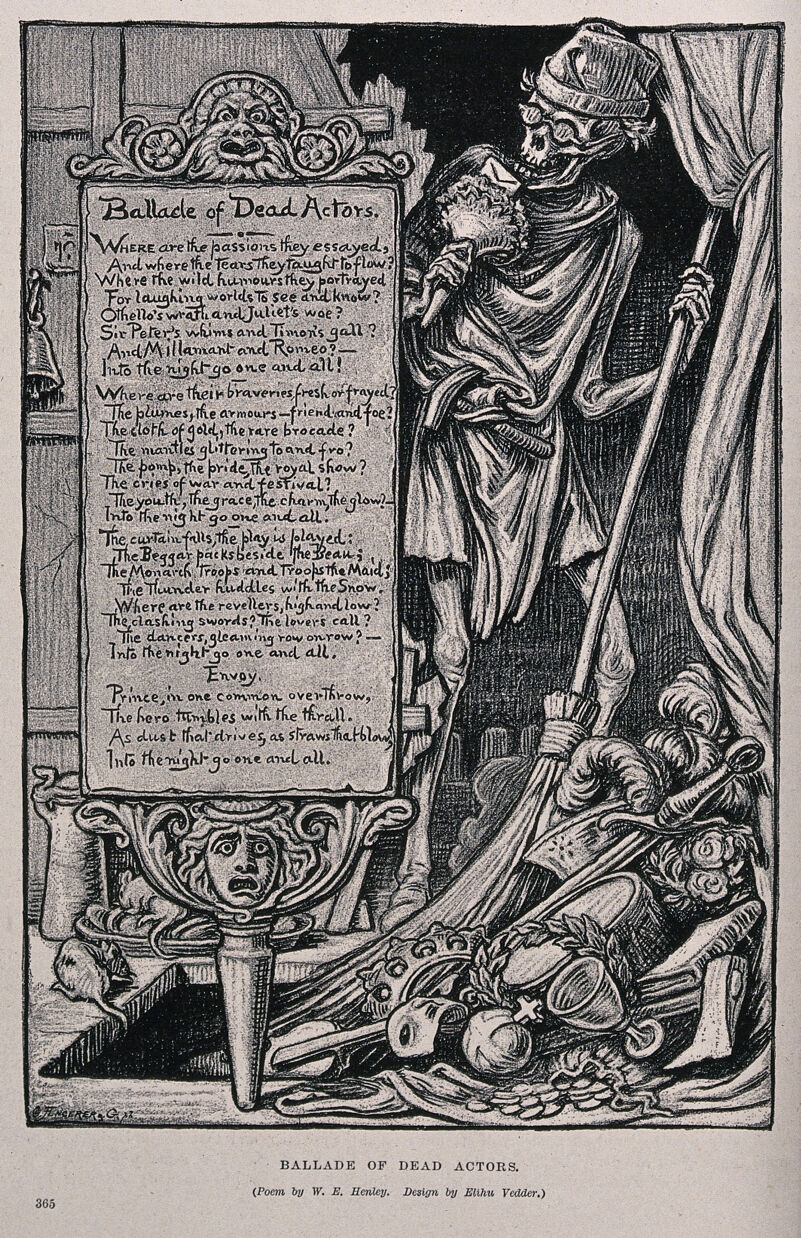 Ballade of Dead Actors.
WHERE are the passions they essayed,
And where the Tears They taught to flow?
Where the wild humours they portrayed
For laughing worlds to see and know?
Othello's wrath and Juliet's woe?
Sir Peter's whims and Timon's gall?
And Millamant and Romeo?—
Into the night go one and all!
Where are their braveries, fresh or frayed?
The plumes, the armours—friend and foe?
The cloth of gold, the rare brocade?
The mantles glittering to and fro?
The pomp, the pride, the royal show?
The cries of war and festival?
The youth, the grace, the charm, the glow?—
Into the night go one and all.
The curtain falls, the play is played:
The Beggar packs beside the Beau;
The Monarch Troops and Troops the Maid;
The Thunder huddles with the Snow.
Where are the revellers, high and low?
The clashing swords? The lovers call?
The dancers, gleaming row on row?—
Into the night go one and all.
Envoy.
Prince, in one common overthrow,
The hero tumbles with the thrall.
As dust that drives, as straws that blow,
Into the night go one and all.
BALLADE OF DEAD ACTORS.
(Poem by W. E. Henley. Design by Elihu Vedder.)
365